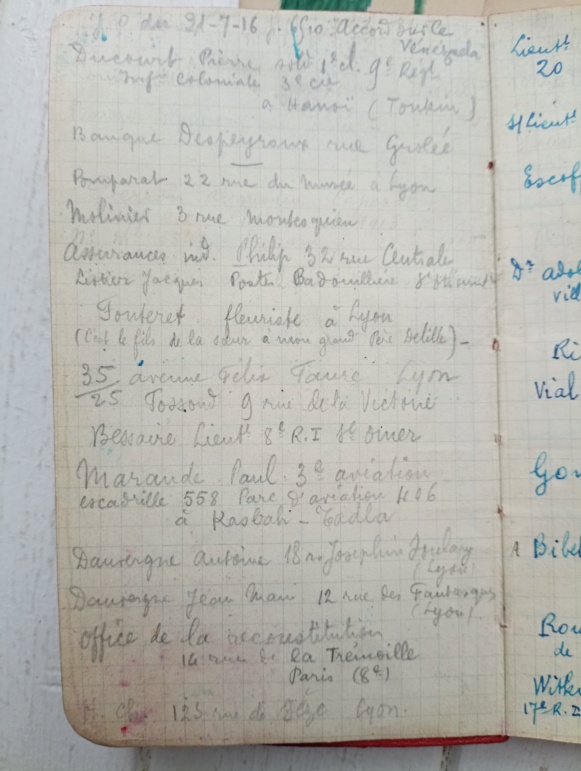 J.O du 21-7-16 p. 6510 Accord sur le
Venezuela
Ducourt Pierre sold 1e cl. 9e Regt
Infie coloniale 3e cie
a Hanoï (Tonkin)
Banque Despeyroux rue Grolée
Pomparat 22 rue du musée à Lyon
Molinier 3 rue montesquieu
Assurances ind. Philip 32 rue Centrale
Listier Jacques Postes Badouillère St Etienne
Fonteret fleuriste à Lyon
(C'est le fils de la sœur à mon grand Père Delille) -
35/25 avenue Félix Faure Lyon
9 rue de la Victoire
Bessaire Lieutt 8e R.I St Omer
Marande Paul 3e aviation
escadrille 558 Parc d'aviation No 6
à Kasbah-Tadla
Dauvergne Antoine 18 r. Josephin Soulary
(Lyon)
Dauvergne Jean Marie 12 rue des Fantasques
(Lyon)
office de la reconstitution
14 rue de la Trémoille
Paris (8e)
125 rue de Sèze Lyon.
Lieutt
20
s/lieutt
Escof
Dr adol
vill
Ri
Vial
Gon
Bibel
Rou
de
Witk
17e R.I